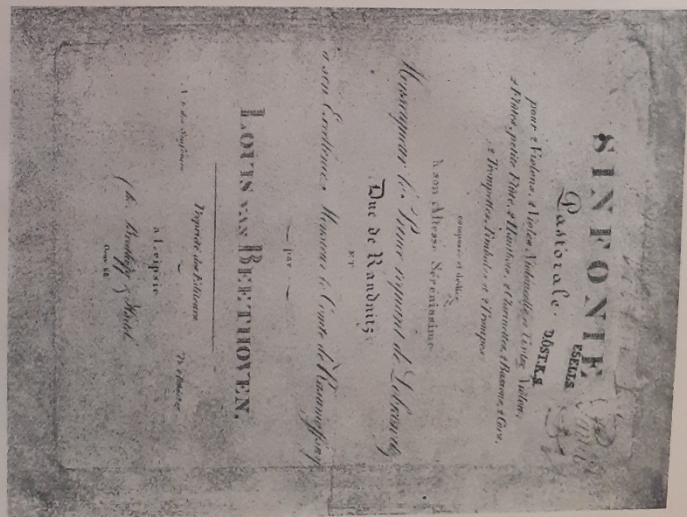 SINFONIE
Pastorale.
pour 2 Violons, 2 Violes, Violoncelle et Contre Violon,
2 Flûtes, petite Flûte, 2 Hautbois, 2 Clarinettes, 2 Bassons, 2 Cors,
2 Trompettes, Timbales et 2 Trompes
composée et dediée
à son Altesse Serenissime
Monseigneur le Prince regnant de Lobkowitz
Duc de Raudnitz
ET
à son Excellence Monsieur le Comte de Rasumoffsky
par
LOUIS VAN BEETHOVEN.
Propriété des Editeurs
à Leipsic
Chez Breitkopf & Härtel